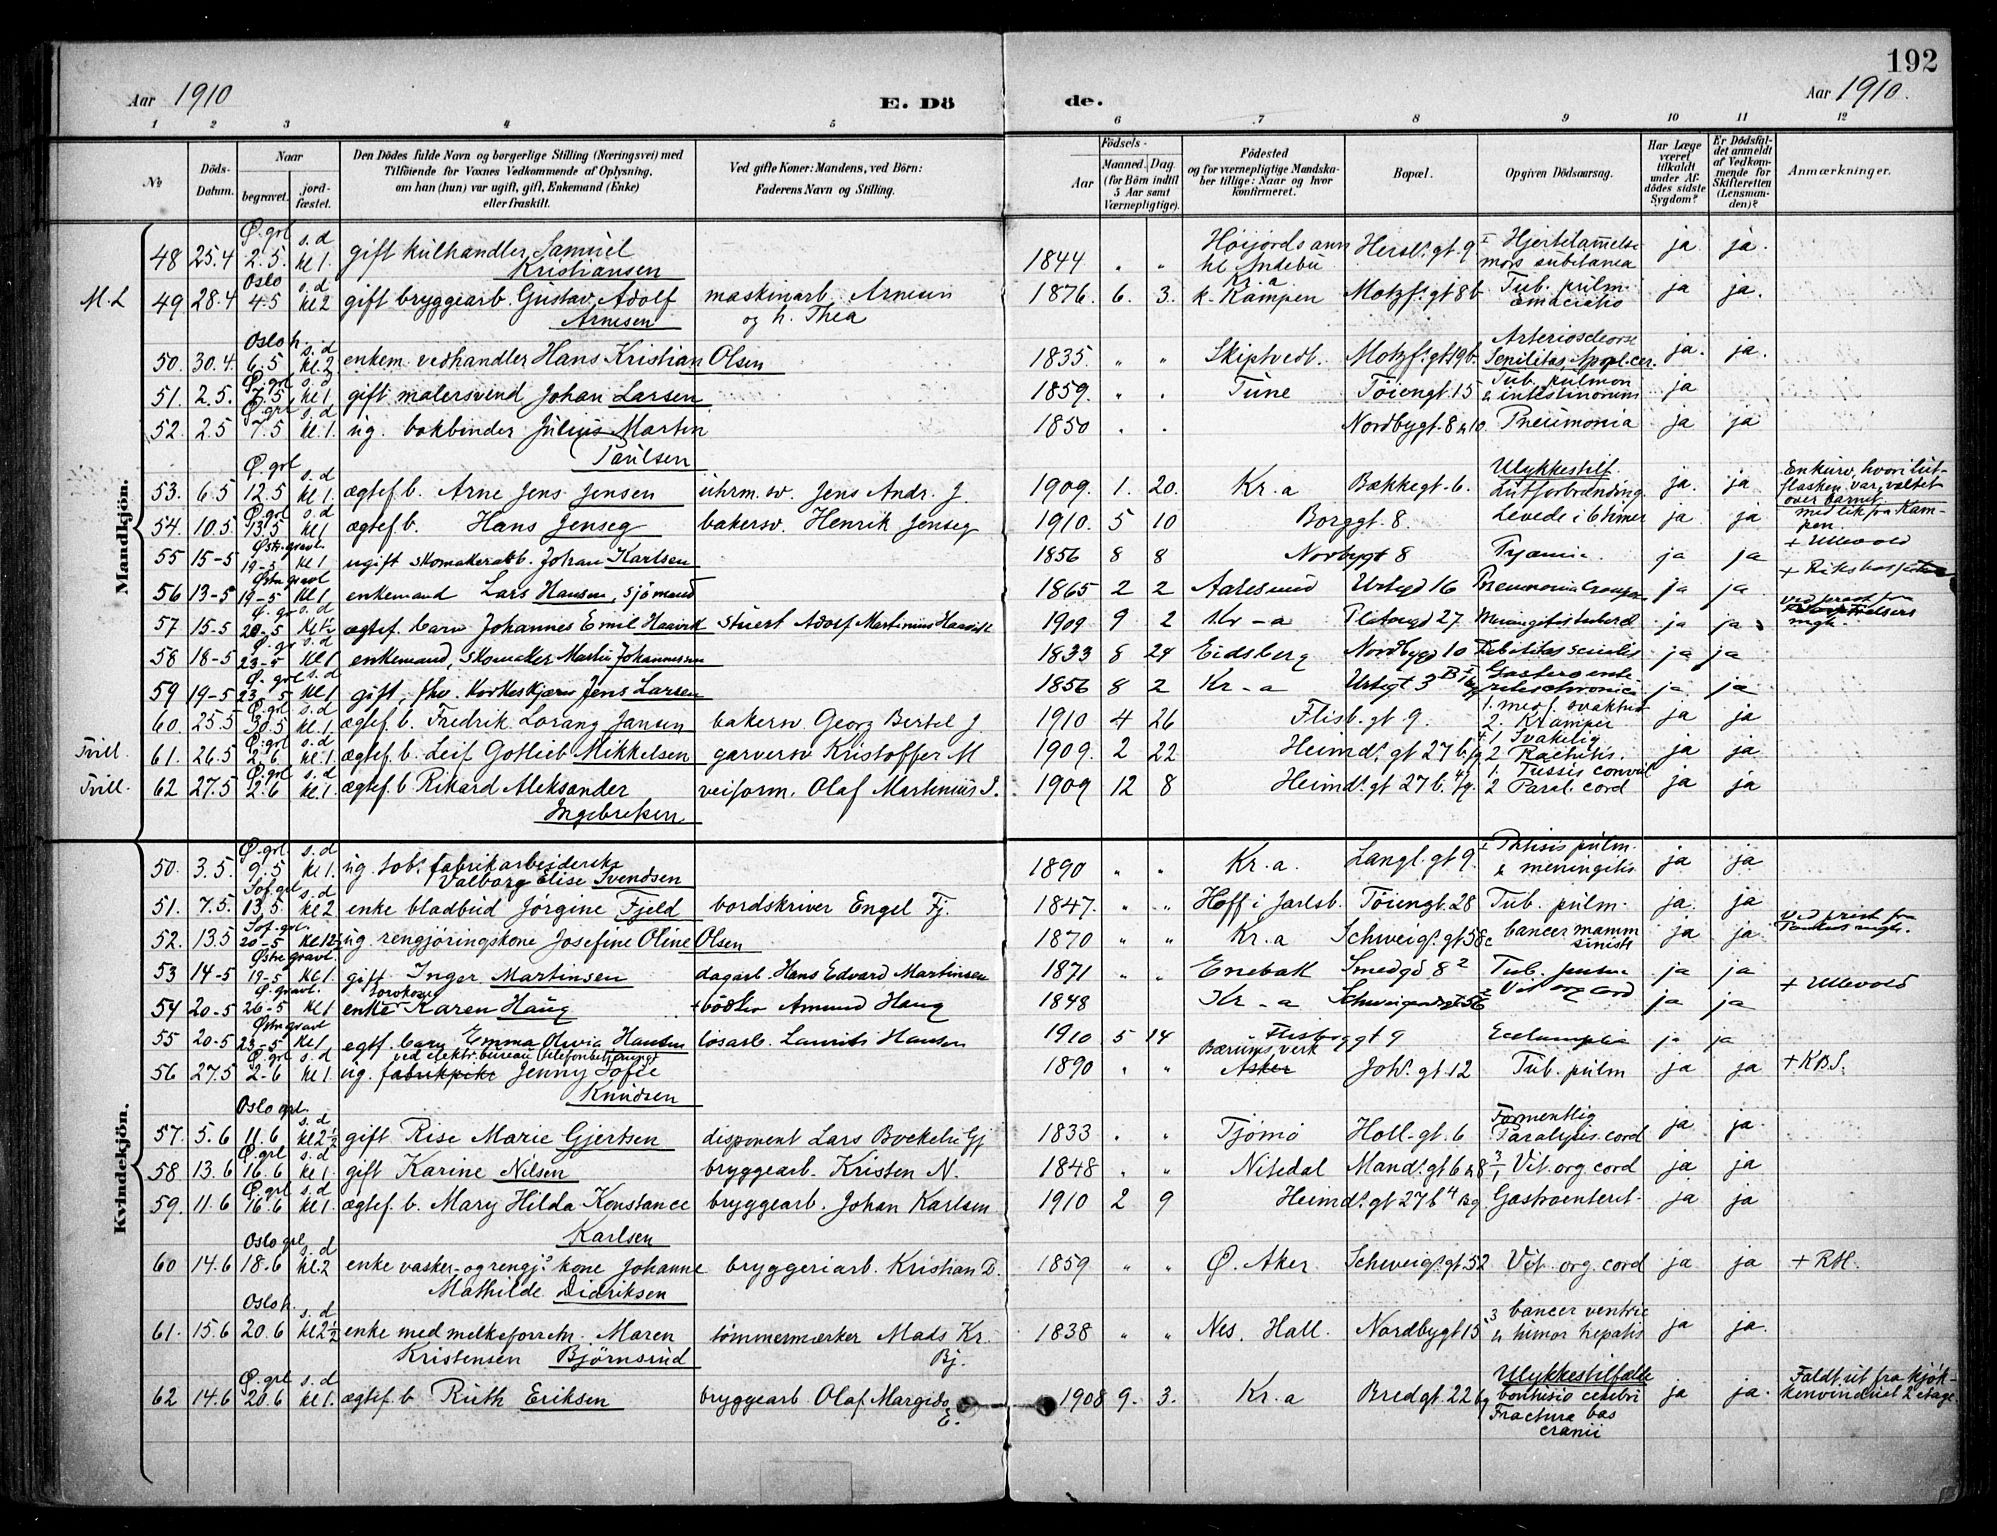 192
Aar 1910
E. Dö
de.
Aar 1910.
1 2 3 4 5 6 7 8 9 10 11 12
№
Döds-Datum.
Naar
begravet.
jord-fæstet.
Den Dödes fulde Navn og borgerlige Stilling (Næringsvei) med
Tilföiende for Voxnes Vedkommende af Oplysning,
om han (hun) var ugift, gift, Enkemand (Enke)
eller fraskilt.
Ved gifte Koner: Mandens, ved Börn:
Faderens Navn og Stilling.
Födsels-
Aar
Maaned. Dag
(for Börn indtil
5 Aar samt
Værnepligtige).
Födested
og for værnepligtige Mandska-
ber tillige: Naar og hvor
konfirmeret.
Bopæl.
Opgiven Dödsaarsag.
Har Læge
været
tilkaldt
under Af-
dödes sidste
Sygdom?
Er Dödsfal-
det anmeldt
af Vedkom-
mende for
Skifteretten
(Lensman-
den)?
Anmærkninger.
Mandkjön.
Ø. grl s. d Høijords ann Hjertelammelse
48 25.4 2.5. kl 1. gift kulhandler Samuel 1844 " " hl Andebu Hersl. gt. 9 mors subitanea ja ja.
Kristiansen
Oslo s. d Kr. a Tub. pulm.
M. L 49 28.4 4.5 kl 2 gift bryggearb. Gustav Adolf maskinarb. Arnesen 1876. 6. 3. k. Kampen Motzf. gt 8b emaciatio ja ja.
Arnesen og h. Thea
Oslo h. s. d Arterioscleorse
50. 30.4 6.5 kl. 2 enkem. vedhandler Hans Kristian Olsen 1835 " " Skiptvedt. Motzf. gt 19b. Senilitas, Apopl. cer. ja. ja.
Ø. grl s. d Tub. pulmon
51. 2.5. 7.5 kl 1 gift malersvend Johan Larsen 1859. " . Tune Tøiengt. 15 & intestinorum ja
Ø. grl s. d
52. 2.5 7.5 kl. 1. ug. bokbinder Julius Martin 1850 . . Nordbygt. 8 Pneumonia ja ja
Paulsen
Ø. grl s. d Ulykkestilf. En kurv, hvori lut-
53. 6.5 12.5 kl 1. ægtef. b. Arne Jens Jensen uhrm. sv. Jens Andr. J. 1909. 1. 20. Kr. a Bækkegt. 6. Lutforbrænding ja. ja. flasken var, væltet
over barnet.
Ø. grl s. d
54. 10.5 13.5 kl 1 ægtef. b. Hans Jenseg bakersv. Henrik Jenseg 1910. 5 10 Borggt. 8. Levede i 6 timer ja ja med lik fra Kam-
pen.
Østr. gravl.
55 15-5 19-5 kl 1 ugift skomakerarb. Johan Karlsen 1856 8 8 Norbygt 8 Pyæmie. ja ja + Ullevold
Østre gravl
56 13-5 19-5 kl 1 enkemand Lars Hansen, sjømand 1865 2 2 Aalesund Urtegd 16 Pneumonia ja ja
57 15.5 20-5 ægtef. barn Johannes Emil Haavik Adolf Martinius 1909 9 2 Kr-a Platougd 27 ja ja ved prest fra
s. d
58 18-5 23-5 kl 1 enkemand, skomaker Martin Johannessen 1833 8 24 Eidsberg Nordbygd 10 Debilitas senilis ja ja
Ø. grl s. d Gastero ente
59 19-5 23-5 kl 1 gift, fhv. Korkeskjærer Jens Larsen 1856 8 2 Kr-a Urtegt 3 ja ja
Ø. grl s. d 1. med. svakhed
60. 25.5 30.5 kl 1. ægtef. b. Fredrik Lorang Jansen bakersv Georg Bertel J. 1910 4 26 Flisb. gt 9. 2. Kramper ja ja
Ø. grl s. d 1 Svakelig
Tvill. 61. 26.5 2.6 kl. 1 ægtef. b. Leif Gotlieb Mikkelsen garversv Kristoffer M 1909. 2 22 Heimd. gt 27 b. 2 Rachitis. ja ja
Ø. grl s. d 1. Tussis convul
Tvill. 62 27.5 2.6 kl 1. ægtef. b Rikard Aleksander veiform. Olaf Martinius I. 1909 12 8 Heimd. gt 27 b. 2 Paral. cord ja ja
Ingebretsen
Kvindekjön.
Ø. grl s. d Phtisis pulm.
50. 3.5. 9.5 kl 1. ug. tob. fabrikarbeiderske 1890 " " Kr. a. Langl. gt 9. & meningitis ja ja
Valborg Elise Svendsen
Sof. grl s. d
51. 7.5. 13.5. kl 2 enke bladbud Jørgine Fjeld bordskriver Engel Fj. 1847. " " Hoff i Jarlsb. Tøiengt. 28 Tub. pulm. ja. ja
Sof. grl.
52. 13.5 20-5 ug rengjøringskone Josefine Oline Olsen 1870 " " Kr. a. Schweig. gt 58c cancer mamm ja ja. ved prest fra
sinistr
Østre gravl.
53 14-5 19-5 kl 1 gift Inger Martinsen dagarb. Hans Edvard Martinsen 1871 " " Enebak Smedgd 8 Tub. ja ja + Ullevold
Ø. gravl.
54 20-5 26-5 kl 1 enke Karen Haug Amund Haug 1848 Kr-a Vit org cord ja ja
Østre gravl
55 20-5 23-5 kl 1 egtf. barn Emma Olivia Hansen løsarb. Laurits Hansen 1910 5 14 Flisbyggt 9 Eclampsia ja ja
Ø. grl s. d ved elektr. bureau Bærums verk
56 27.5 2.6 kl 1 ug. fabrikpike Jenny Sofie 1890 " " Asker Joh. gt. 12 Tub. pulm ja ja + K.B.S.
Knudsen
Oslo grl. s. d Formentlig
57. 5.6 11.6 kl 2½ gift Rise Marie Gjertsen disponent Lars Bockelie Gj 1833 " " Tjømø Holl. gt. 6 Paralysis cord ja ja.
Ø. grl s. d
58 13.6 16.6 kl 1. gift Karine Nilsen bryggearb. Kristen N. 1848 " " Nitedal Mand. gt 6 Vit. org. cord ja ja
Ø. grl s. d
59. 11.6 16.6 kl 1. ægtef. b. Mary Hilda Konstance bryggearb. Johan Karlsen 1910 2 9 Heimd. gt 27 b Gastroenterit. ja ja
Karlsen
Oslo grl s. d
60 14.6 18.6 kl. 2 enke vasker- og rengj. kone Johanne bryggeriarb. Kristian D. 1859 " " Ø. Aker Schweig. gt. 52 Vit. org. cord ja ja + RH.
Mathilde Didriksen
Oslo h. s. d cancer ventric
61. 15.6 20.6 kl 2½ enke med melkeforretn. Maren tømmermærker Mads Kr. 1838 " " Nes, Hall. Nordbygt 15 & tumor hepatis ja ja.
Kristensen Bjørnsrud Bj.
Ø. grl s. d Ulykkestilfælle Faldt ut fra kjøk-
62 14.6 20.6 kl 1. ægtef. b Ruth Eriksen bryggearb Olaf Margido 1908 9. 3. Kr. a Bredgt. 22 contusio cerebri ja ja. kenvinduet 2 etage
E. Fractura bas
cranii